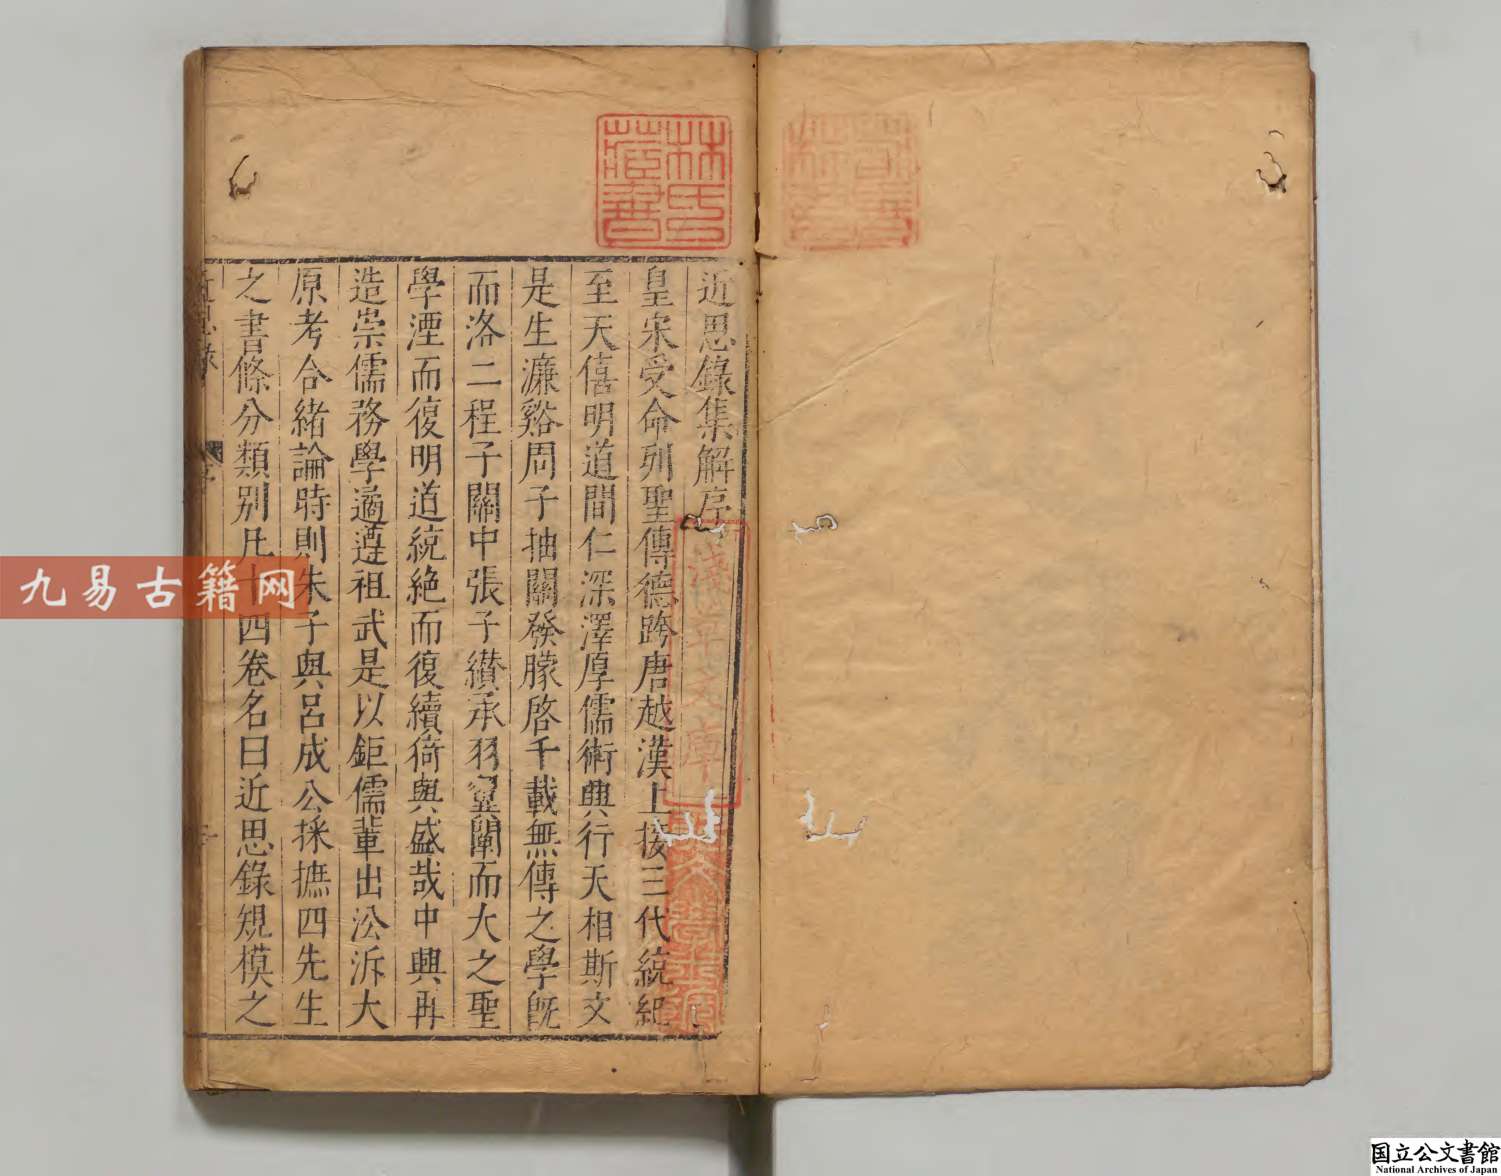 近思錄集解序
皇宋受命列聖傳德跨唐越漢上接三代統紀
至天僖明道間仁深澤厚儒術興行天相斯文
是生濂谿周子抽關發朦啓千載無傳之學既
而洛二程子關中張子纘承羽翼闡而大之聖
學湮而復明道統絶而復續猗與盛哉中興再
造崇儒務學遹遵祖武是以鉅儒輩出沿泝大
原考合緒論時則朱子與呂成公採摭四先生
之書條分類別凡十四卷名曰近思錄規模之
近思錄
序
林氏藏書
淺草文庫
九易古籍网
国立公文書館
National Archives of Japan